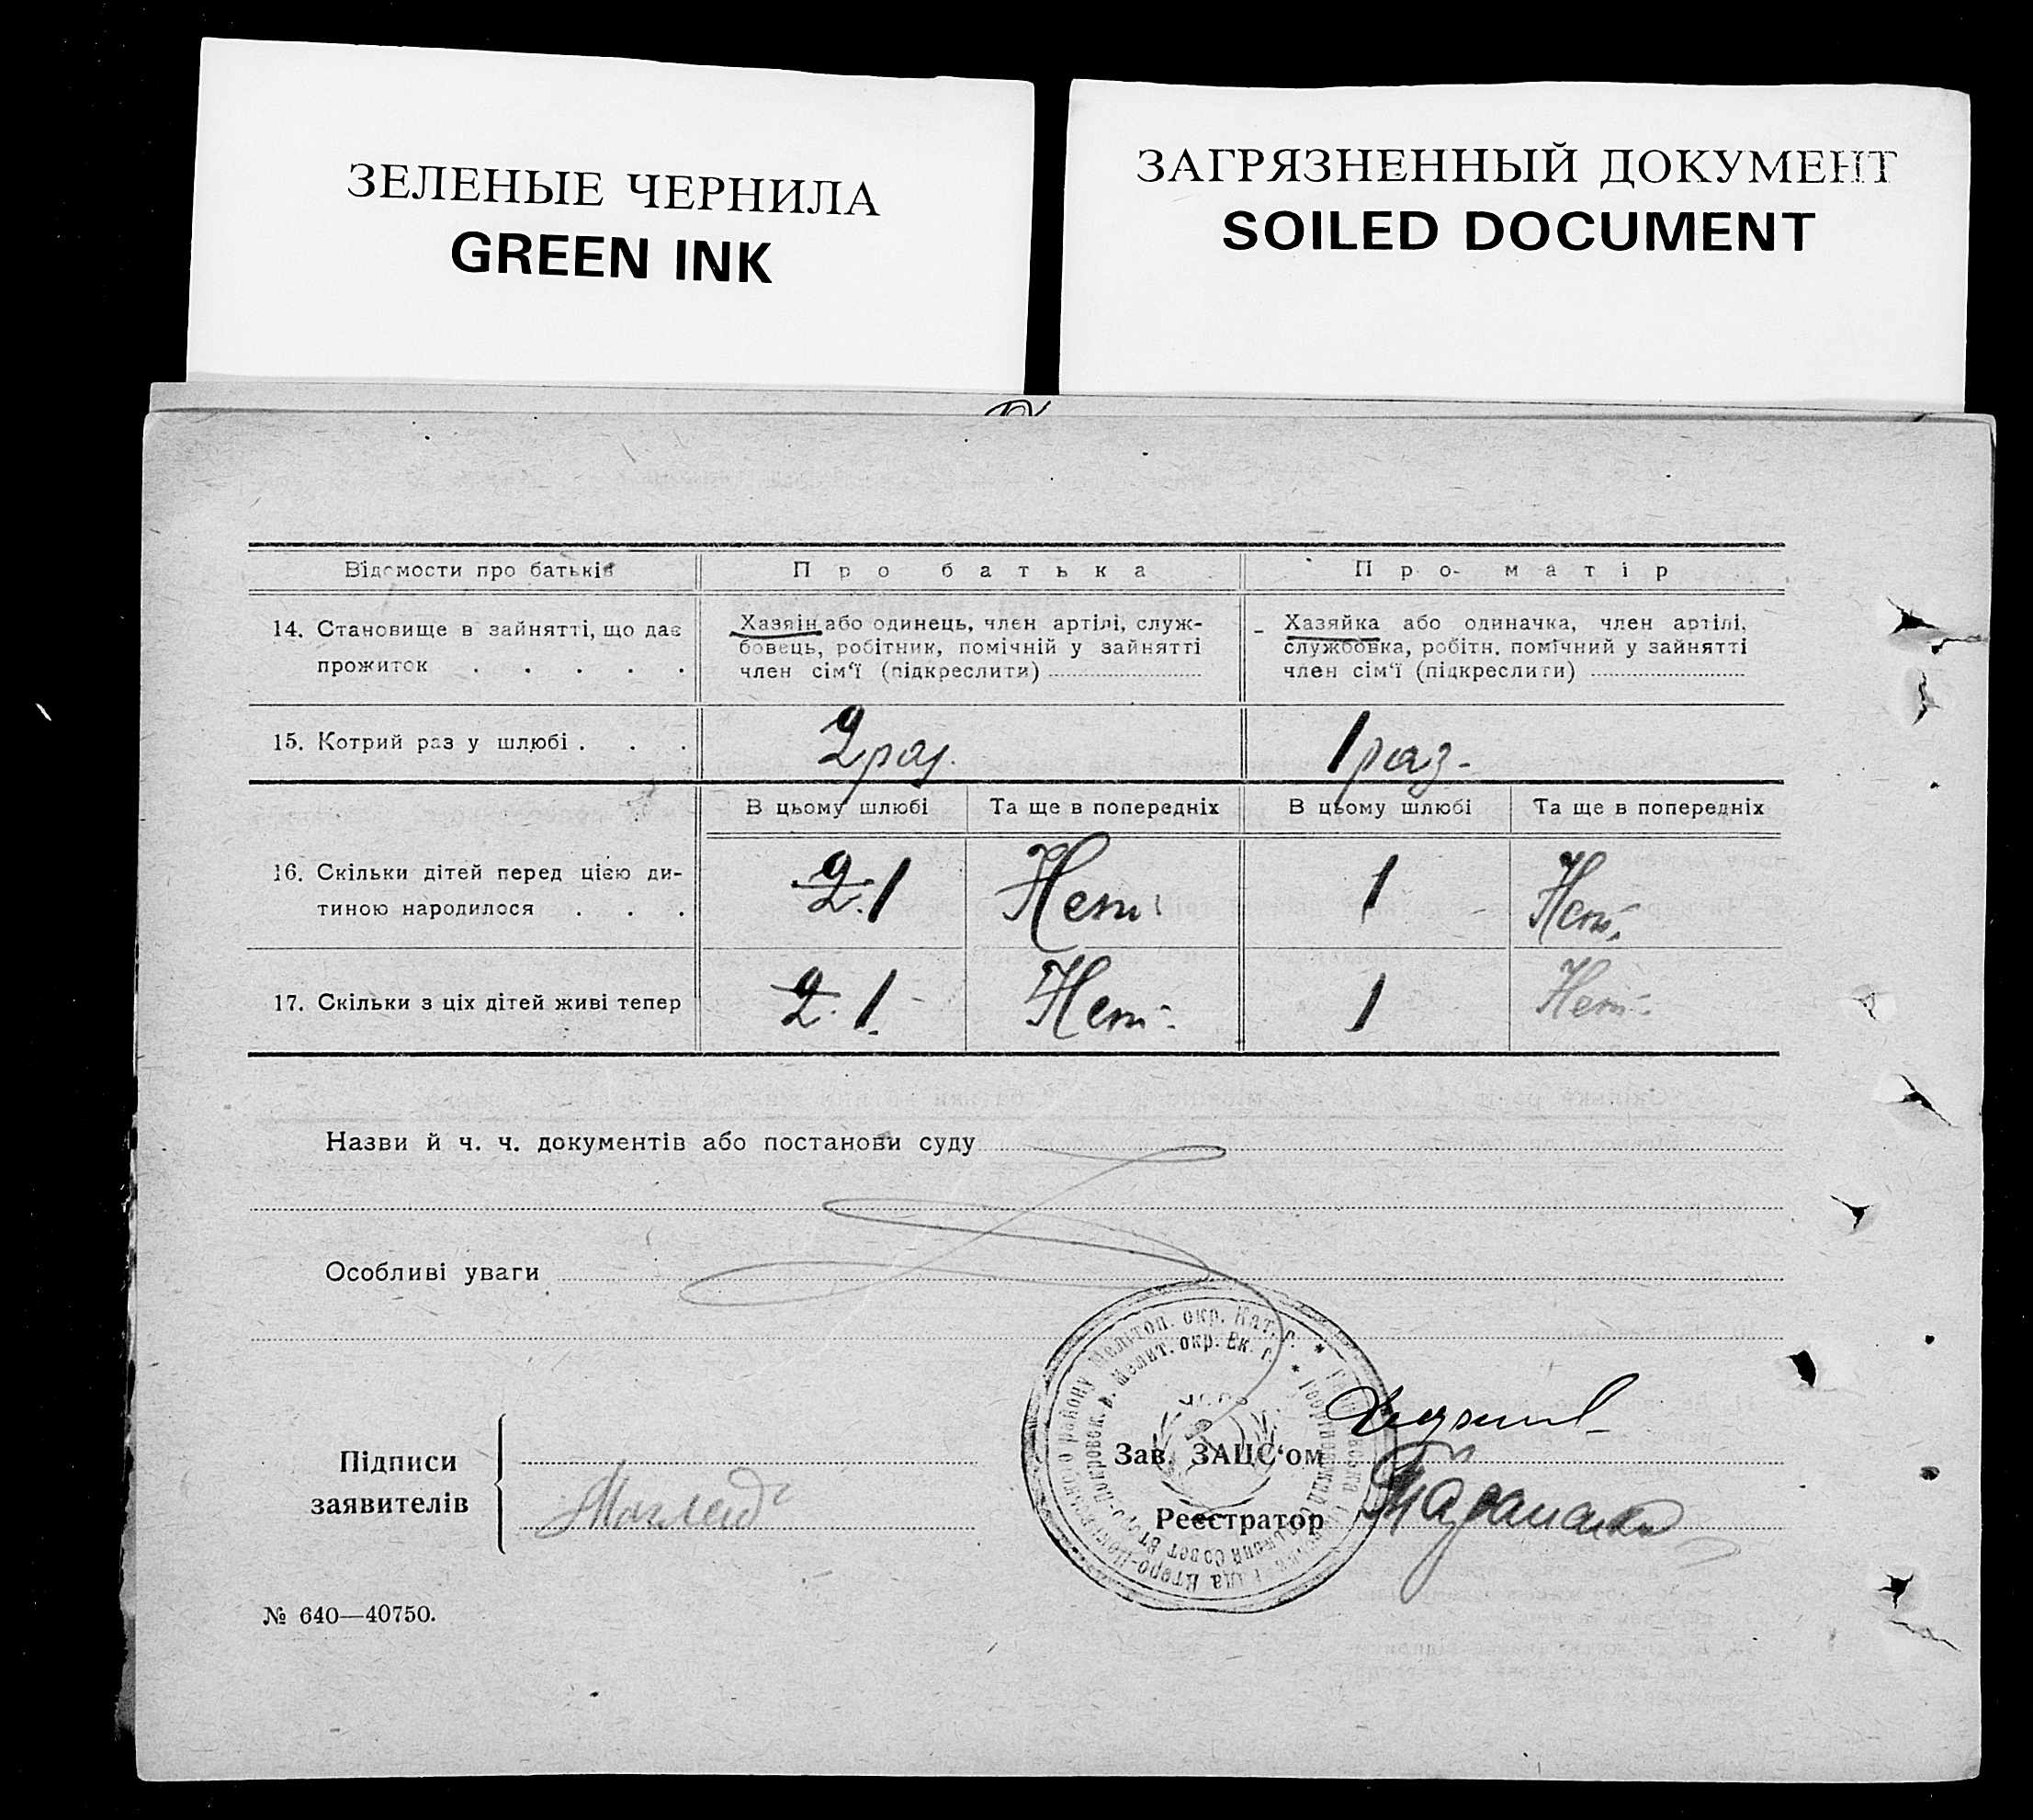 ЗЕЛЕНЫЕ ЧЕРНИЛА
GREEN INK
ЗАГРЯЗНЕННЫЙ ДОКУМЕНТ
SOILED DOCUMENT
Відомости про батьків
Про батька
Про матір
14. Становище в зайнятті, що дає
прожиток . . . . .
Хазяін або одинець, член артілі, служ-
бовець, робітник, помічній у зайнятті
член сім‘ї (підкреслити)
Хазяйка або одиначка, член артілі,
службовка, робітн. помічний у зайнятті
член сім‘ї (підкреслити)
15. Котрий раз у шлюбі . . .
2 раз.
1 раз.
В цьому шлюбі
Та ще в попередніх
В цьому шлюбі
Та ще в попередніх
16. Скільки дітей перед цією ди-
тиною народилося . . .
2. 1
Нет
1
Нет
17. Скільки з ціх дітей живі тепер
2. 1.
Нет
1
Нет
Назви й ч. ч. документів або постанови суду
Особливі уваги
Мелітоп. окр. Кат. г. *
Мелит. окр. Ек. г. *
Підписи
заявителів
Зав. ЗАЦС‘ом
Реєстратор
№ 640—40750.